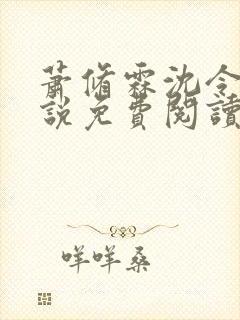 蕭脩霖沈令
說免費閱讀
咩咩桑